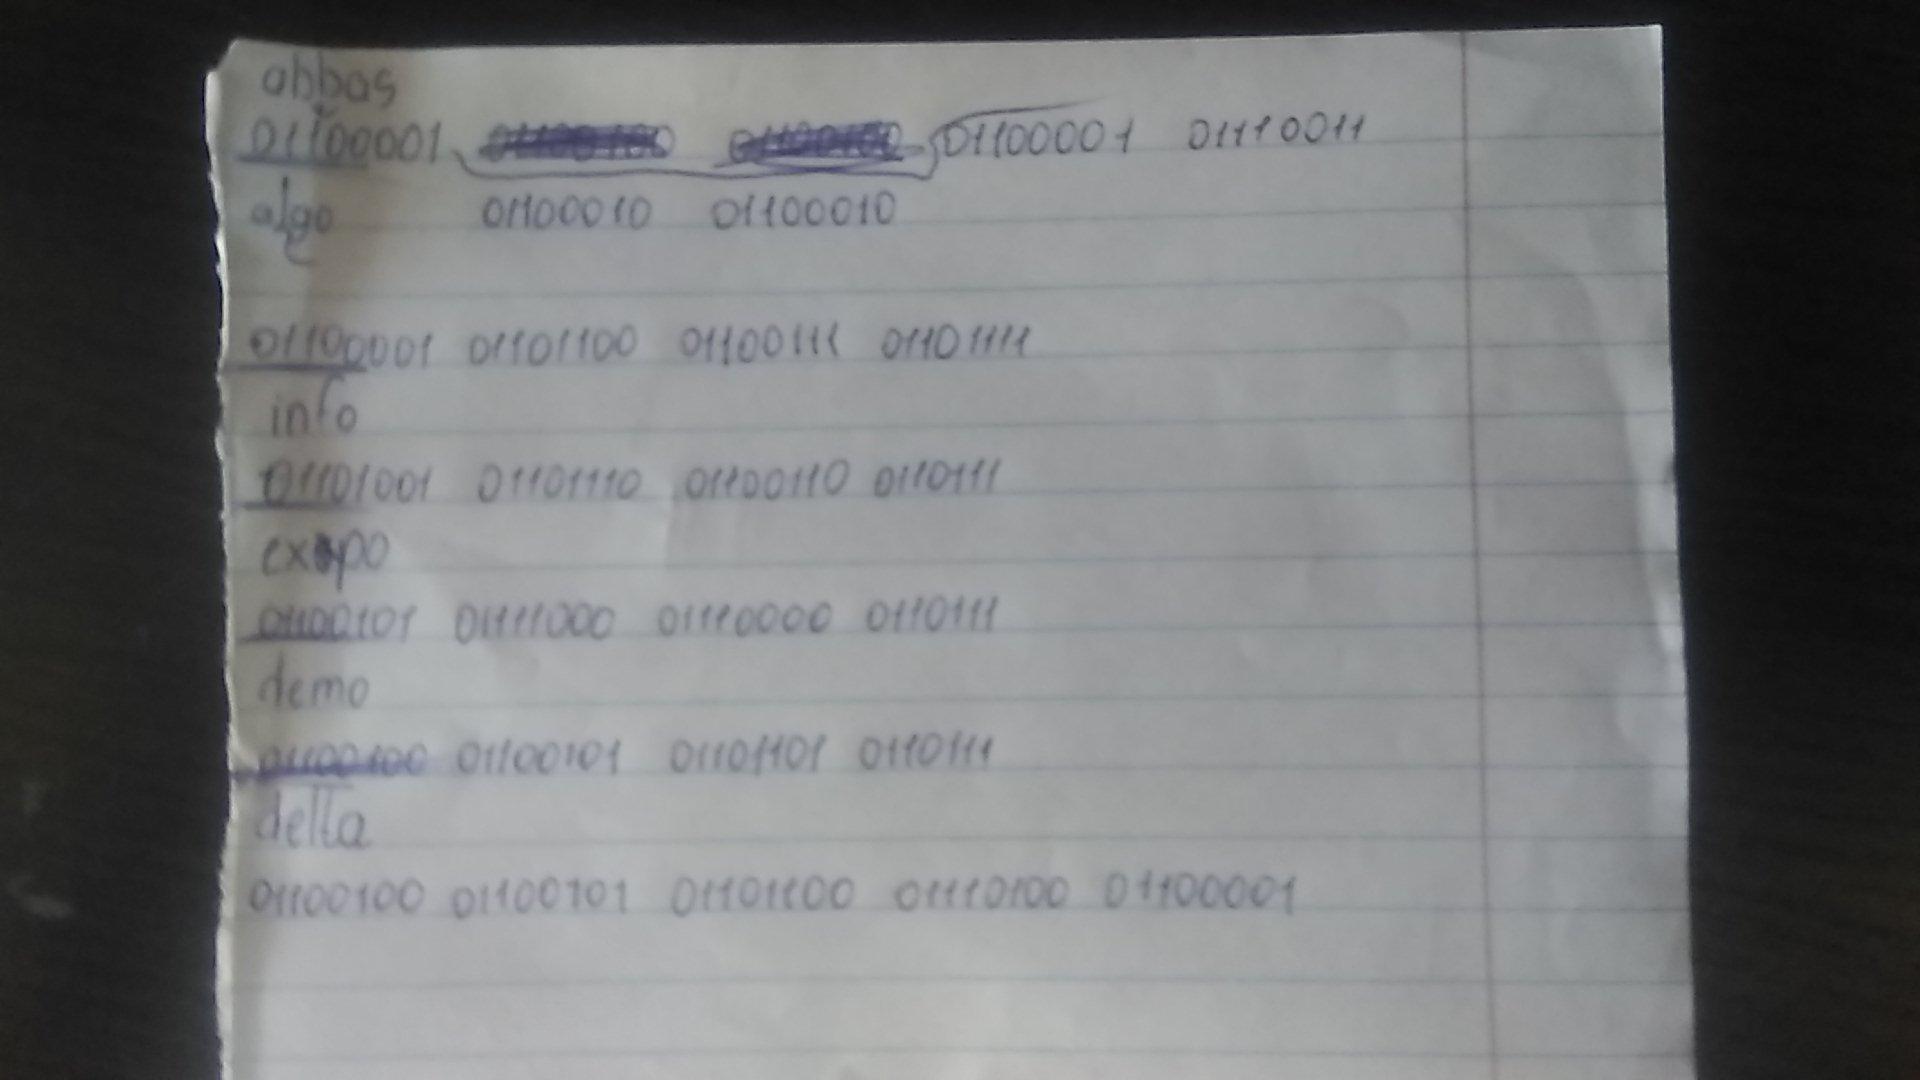 abbas
01100001 01100001 01110011
algo 01100010 01100010
01100001 01101100 01100111 01101111
info
01101001 01101110 01100110 0110111
expo
01100101 01111000 01110000 0110111
demo
01100100 01100101 01101101 0110111
delta
01100100 01100101 01101100 01110100 01100001